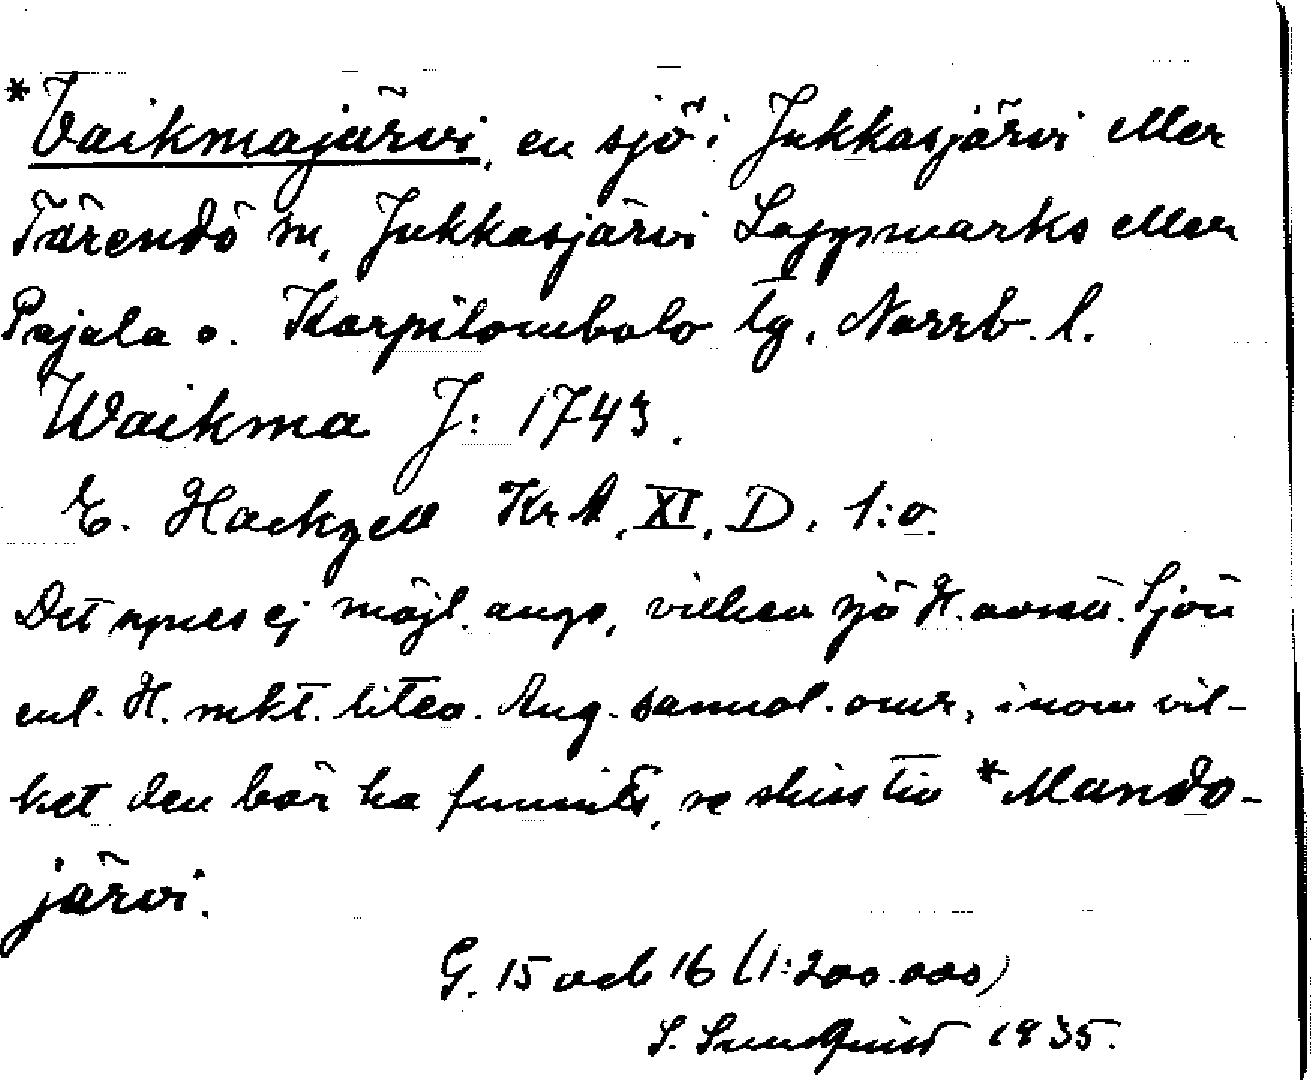 *Vaikmajärvi, en sjö i Jukkasjärvi eller
Tärendö sn, Jukkasjärvi Lappmarks eller
Pajala o. Korpilombolo tg, Norrb. l.
Waikma J: 1743.
E. Hackzell KrA, XI, D, 1:o.
Det synes ej möjl. ange, vilken sjö H. avsett. Sjön
enl. H. mkt. liten. Ang. sannol. omr, inom vil-
ket den bör ha funnits, se skiss till *Mando-
järvi.
G. 15 och 16 (1:200.000)
S. Sundquist 1935.